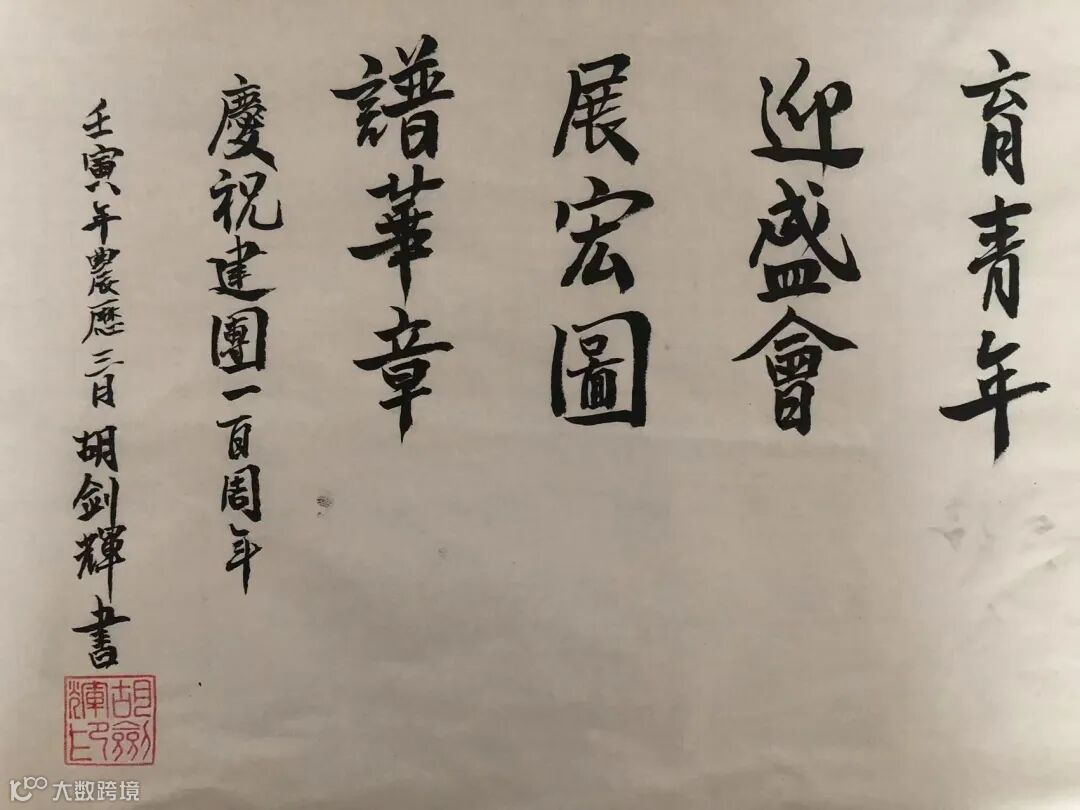 育青年
迎盛會
展宏圖
譜華章
慶祝建團一百周年
壬寅年農歷三月 胡剑輝書
胡劍
輝印
大数跨境